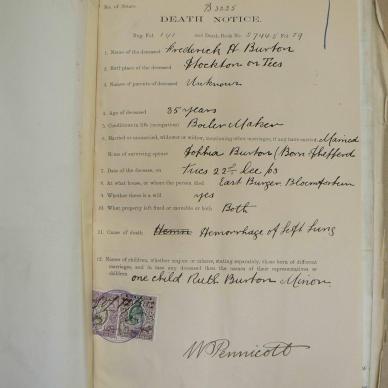 No. of Estate. B 3035
DEATH NOTICE.
Reg. Fol 141 and Death Book No. 57445 Fol 59
1. Name of the deceased Frederick H Burton
2. Birthplace of the deceased Stockton on Tees
3. Names of parents of deceased Unknown
4. Age of deceased 35 years
5. Conditions in life (occupation) Boiler Maker
6. Married or unmarried, widower or widow, mentioning other marriages, if any have existed Married
Name of surviving spouse Sophia Burton (Born Shefferd
7. Date of the decease, on Tues 22nd Dec 03
8. At what house, or where the person died East Burger Bloemfontein
9. Whether there is a will yes
10. What property left fixed or movable or both Both
11. Cause of death Hemorrhage of left Lung
12. Names of children, whether major or minors, stating separately, those born of different
marriages, and in case any deceased then the names of their representatives or
children. one child Ruth Burton Minor
W Pennicott